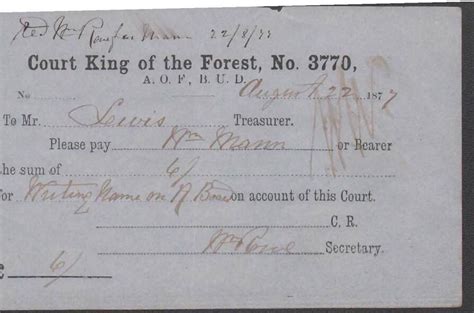 Recd Wm Rowe for Mann 22/8/77
Court King of the Forest, No. 3770,
A. O. F., B. U. D.
No August 22 1877
To Mr. Lewis Treasurer.
Please pay Wm Mann or Bearer
the sum of 6/
for Writing Name on R Board on account of this Court.
C. R.
Wm Rowe Secretary.
£ 6/